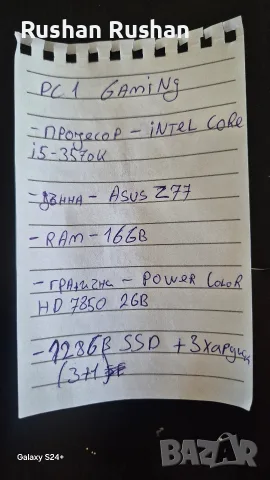 Rushan Rushan
PC 1 GAMiNg
- Процесор - iNTEL CORE
i5-3570K
- дънна - ASUS Z77
- RAM - 16GB
- графична - POWER COLOR
HD 7850 2GB
- 128GB SSD + 3 харда
(3+1)
Galaxy S24+
BAZAR